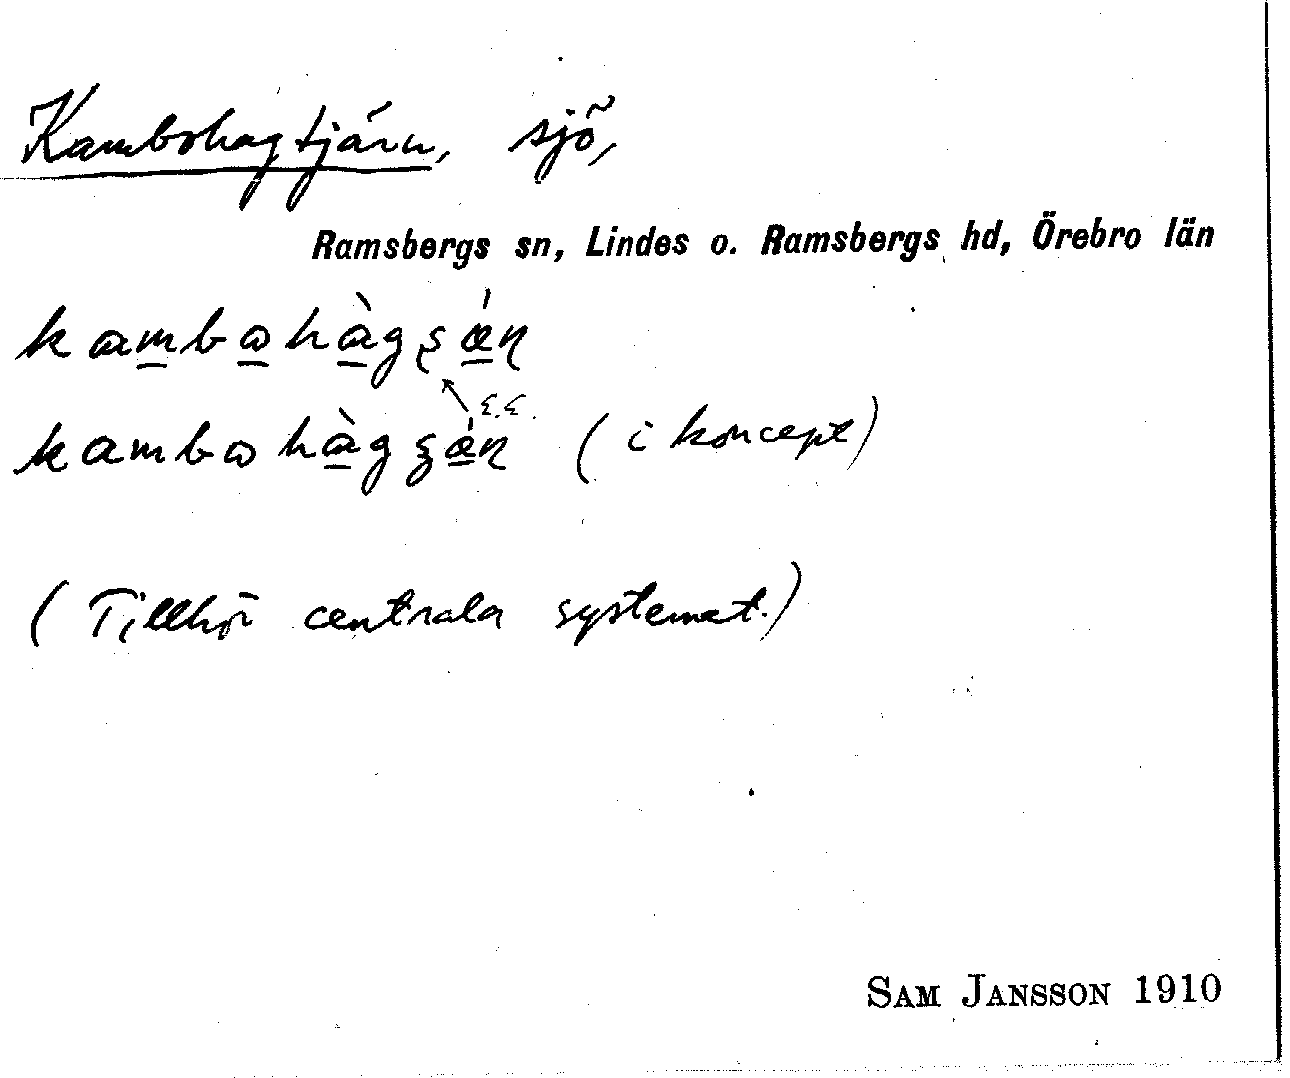 Kambohagtjärn, sjö,
Ramsbergs sn, Lindes o. Ramsbergs hd, Örebro län
kambohàgʂǽɳ
kambohàgʐǽɳ (i koncept)
(Tillhör centrala systemet.)
SAM JANSSON 1910